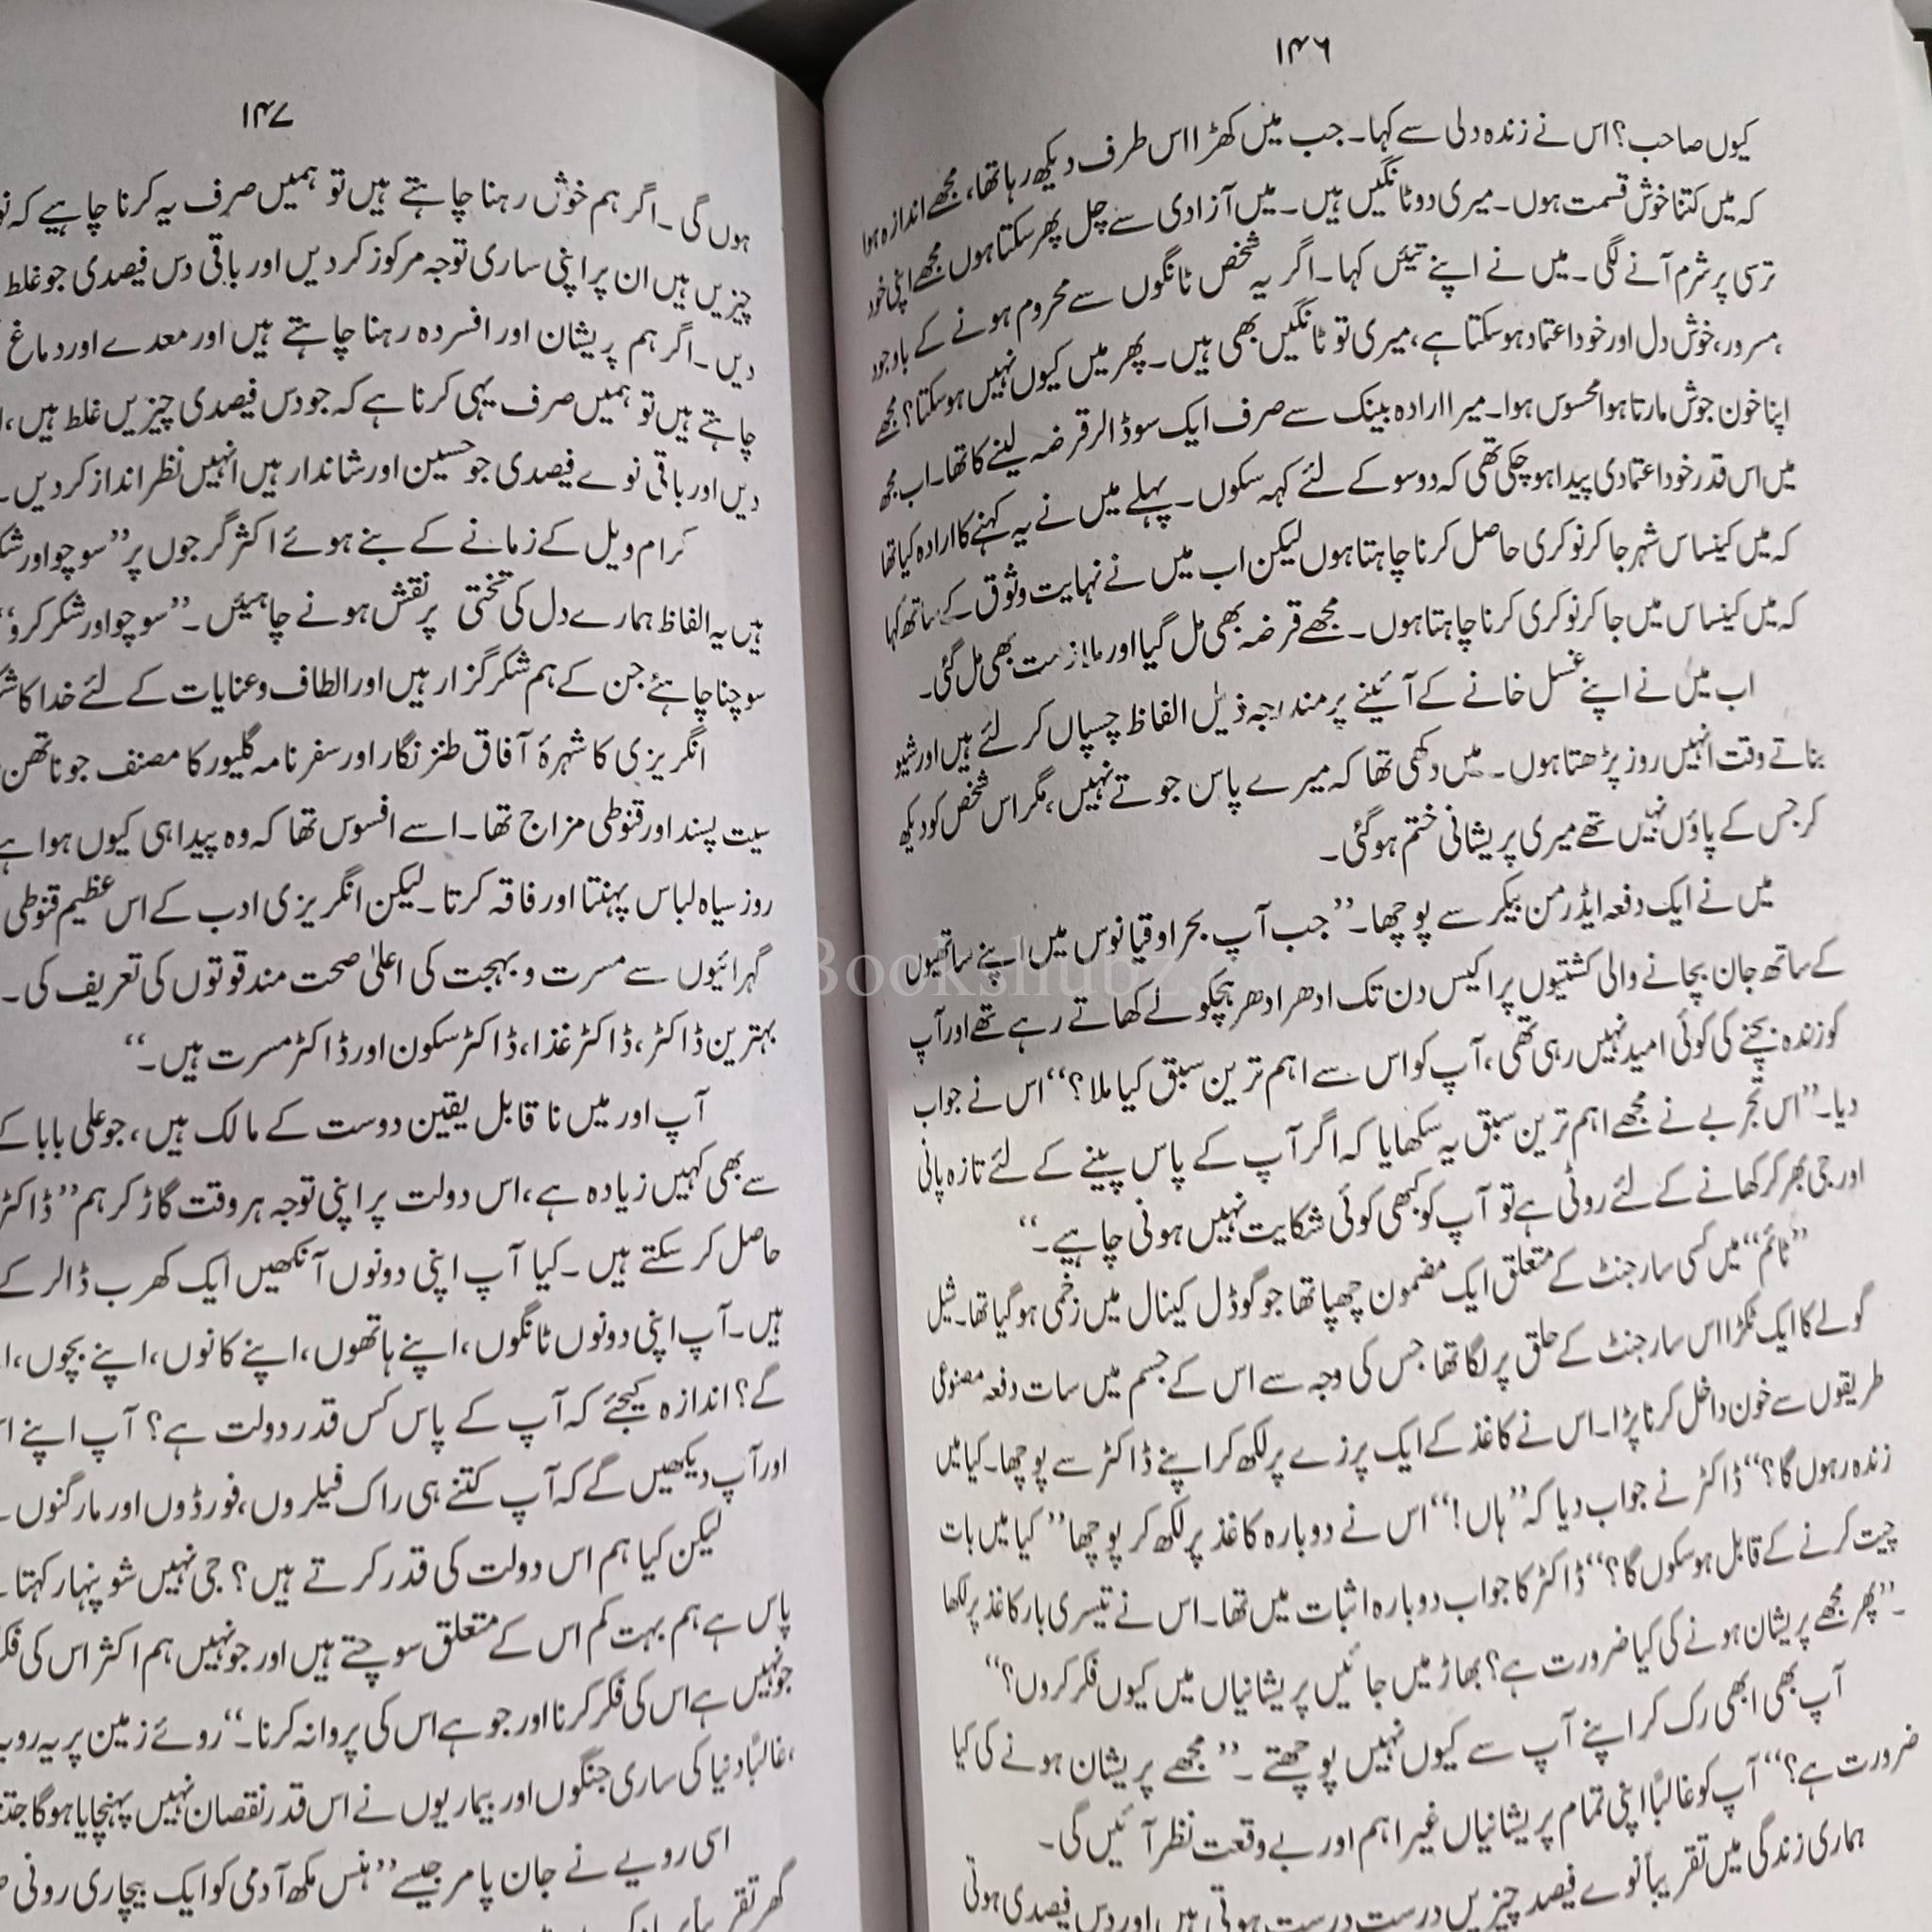 ۱۴۶
کیوں صاحب؟ اس نے زندہ دلی سے کہا۔ جب میں کھڑا اس طرف دیکھ رہا تھا، مجھے اندازہ ہوا
کہ میں کتنا خوش قسمت ہوں۔ میری دو ٹانگیں ہیں۔ میں آزادی سے چل پھر سکتا ہوں مجھے اپنی خود
ترسی پر شرم آنے لگی۔ میں نے اپنے تیئں کہا۔ اگر یہ شخص ٹانگوں سے محروم ہونے کے باوجود
،مسرور، خوش دل اور خود اعتماد ہو سکتا ہے، میری تو ٹانگیں بھی ہیں۔ پھر میں کیوں نہیں ہو سکتا؟ مجھے
اپنا خون جوش مارتا ہوا محسوس ہوا۔ میرا ارادہ بینک سے صرف ایک سو ڈالر قرضہ لینے کا تھا۔ اب مجھ
میں اس قدر خود اعتمادی پیدا ہو چکی تھی کہ دو سو کے لئے کہہ سکوں۔ پہلے میں نے یہ کہنے کا ارادہ کیا تھا
کہ میں کینساس شہر جا کر نوکری حاصل کرنا چاہتا ہوں لیکن اب میں نے نہایت وثوق کے ساتھ کہا
کہ میں کینساس میں جا کر نوکری کرنا چاہتا ہوں۔ مجھے قرضہ بھی مل گیا اور ملازمت بھی مل گئی۔
اب میں نے اپنے غسل خانے کے آئینے پر مندرجہ ذیل الفاظ چسپاں کر لئے ہیں اور شیو
بناتے وقت انہیں روز پڑھتا ہوں۔ میں دکھی تھا کہ میرے پاس جوتے نہیں، مگر اس شخص کو دیکھ
کر جس کے پاؤں نہیں تھے میری پریشانی ختم ہو گئی۔
میں نے ایک دفعہ ایڈرمن بیکر سے پوچھا۔ ”جب آپ بحر اوقیانوس میں اپنے ساتھیوں
کے ساتھ جان بچانے والی کشتیوں پر اکیس دن تک ادھر ادھر ہچکولے کھاتے رہے تھے اور آپ
کو زندہ بچنے کی کوئی امید نہیں رہی تھی، آپ کو اس سے اہم ترین سبق کیا ملا؟“ اس نے جواب
دیا۔ ”اس تجربے نے مجھے اہم ترین سبق یہ سکھایا کہ اگر آپ کے پاس پینے کے لئے تازہ پانی
اور جی بھر کر کھانے کے لئے روٹی ہے تو آپ کو کبھی کوئی شکایت نہیں ہونی چاہیے۔“
”ٹائم“ میں کسی سارجنٹ کے متعلق ایک مضمون چھپا تھا جو گوڈل کینال میں زخمی ہو گیا تھا۔ شیل
گولے کا ایک ٹکڑا اس سارجنٹ کے حلق پر لگا تھا جس کی وجہ سے اس کے جسم میں سات دفعہ مصنوعی
طریقوں سے خون داخل کرنا پڑا۔ اس نے کاغذ کے ایک پرزے پر لکھ کر اپنے ڈاکٹر سے پوچھا۔ کیا میں
زندہ رہوں گا؟“ ڈاکٹر نے جواب دیا کہ ”ہاں!“ اس نے دوبارہ کاغذ پر لکھ کر پوچھا ”کیا میں بات
چیت کرنے کے قابل ہو سکوں گا؟“ ڈاکٹر کا جواب دوبارہ اثبات میں تھا۔ اس نے تیسری بار کاغذ پر لکھا
۔ ”پھر مجھے پریشان ہونے کی کیا ضرورت ہے؟ بھاڑ میں جائیں پریشانیاں میں کیوں فکر کروں؟“
آپ بھی ابھی رک کر اپنے آپ سے کیوں نہیں پوچھتے۔ ”مجھے پریشان ہونے کی کیا
ضرورت ہے؟“ آپ کو غالباً اپنی تمام پریشانیاں غیر اہم اور بے وقعت نظر آئیں گی۔
ہماری زندگی میں تقریباً نوے فیصد چیزیں درست درست ہوتی ہیں اور دس فیصدی ہوتی
۱۴۷
ہوں گی۔ اگر ہم خوش رہنا چاہتے ہیں تو ہمیں صرف یہ کرنا چاہیے کہ
چیزیں ہیں ان پر اپنی ساری توجہ مرکوز کر دیں اور باقی دس فیصدی جو غلط
دیں۔ اگر ہم پریشان اور افسردہ رہنا چاہتے ہیں اور معدے اور دماغ
چاہتے ہیں تو ہمیں صرف یہی کرنا ہے کہ جو دس فیصدی چیزیں غلط ہیں،
دیں اور باقی نوے فیصدی جو حسین اور شاندار ہیں انہیں نظر انداز کر دیں۔
کرام ویل کے زمانے کے بنے ہوئے اکثر گرجوں پر ”سوچو اور
ہیں یہ الفاظ ہمارے دل کی تختی پر نقش ہونے چاہیئں۔ ”سوچو اور شکر کرو“
سوچنا چاہئے جن کے ہم شکر گزار ہیں اور الطاف و عنایات کے لئے خدا کا
انگریزی کا شہرۂ آفاق طنز نگار اور سفر نامہ گلیور کا مصنف جوناتھن
سیت پسند اور قنوطی مزاج تھا۔ اسے افسوس تھا کہ وہ پیدا ہی کیوں ہوا ہے
روز سیاہ لباس پہنتا اور فاقہ کرتا۔ لیکن انگریزی ادب کے اس عظیم قنوطی
گہرائیوں سے مسرت و بہجت کی اعلیٰ صحت مند قوتوں کی تعریف کی۔
بہترین ڈاکٹر، ڈاکٹر غذا، ڈاکٹر سکون اور ڈاکٹر مسرت ہیں۔“
آپ اور میں نا قابل یقین دوست کے مالک ہیں، جو علی بابا کے
سے بھی کہیں زیادہ ہے، اس دولت پر اپنی توجہ ہر وقت گاڑ کر ہم ”ڈاکٹر
حاصل کر سکتے ہیں۔ کیا آپ اپنی دونوں آنکھیں ایک کھرب ڈالر کے
ہیں۔ آپ اپنی دونوں ٹانگوں، اپنے ہاتھوں، اپنے کانوں، اپنے بچوں،
گے؟ اندازہ کیجئے کہ آپ کے پاس کس قدر دولت ہے؟ آپ اپنے
اور آپ دیکھیں گے کہ آپ کتنے ہی راک فیلروں، فورڈوں اور مارگنوں
لیکن کیا ہم اس دولت کی قدر کرتے ہیں؟ جی نہیں شوپنہار کہتا
پاس ہے ہم بہت کم اس کے متعلق سوچتے ہیں اور جو نہیں ہم اکثر اس کی
جو نہیں ہے اس کی فکر کرنا اور جو ہے اس کی پروا نہ کرنا۔“ روئے زمین پر یہ
،غالباً دنیا کی ساری جنگوں اور بیماریوں نے اس قدر نقصان نہیں پہنچایا ہوگا
اسی رویے نے جان پامر جیسے ”ہنس مکھ آدمی کو ایک بیچاری رونی
گھر تقریباً